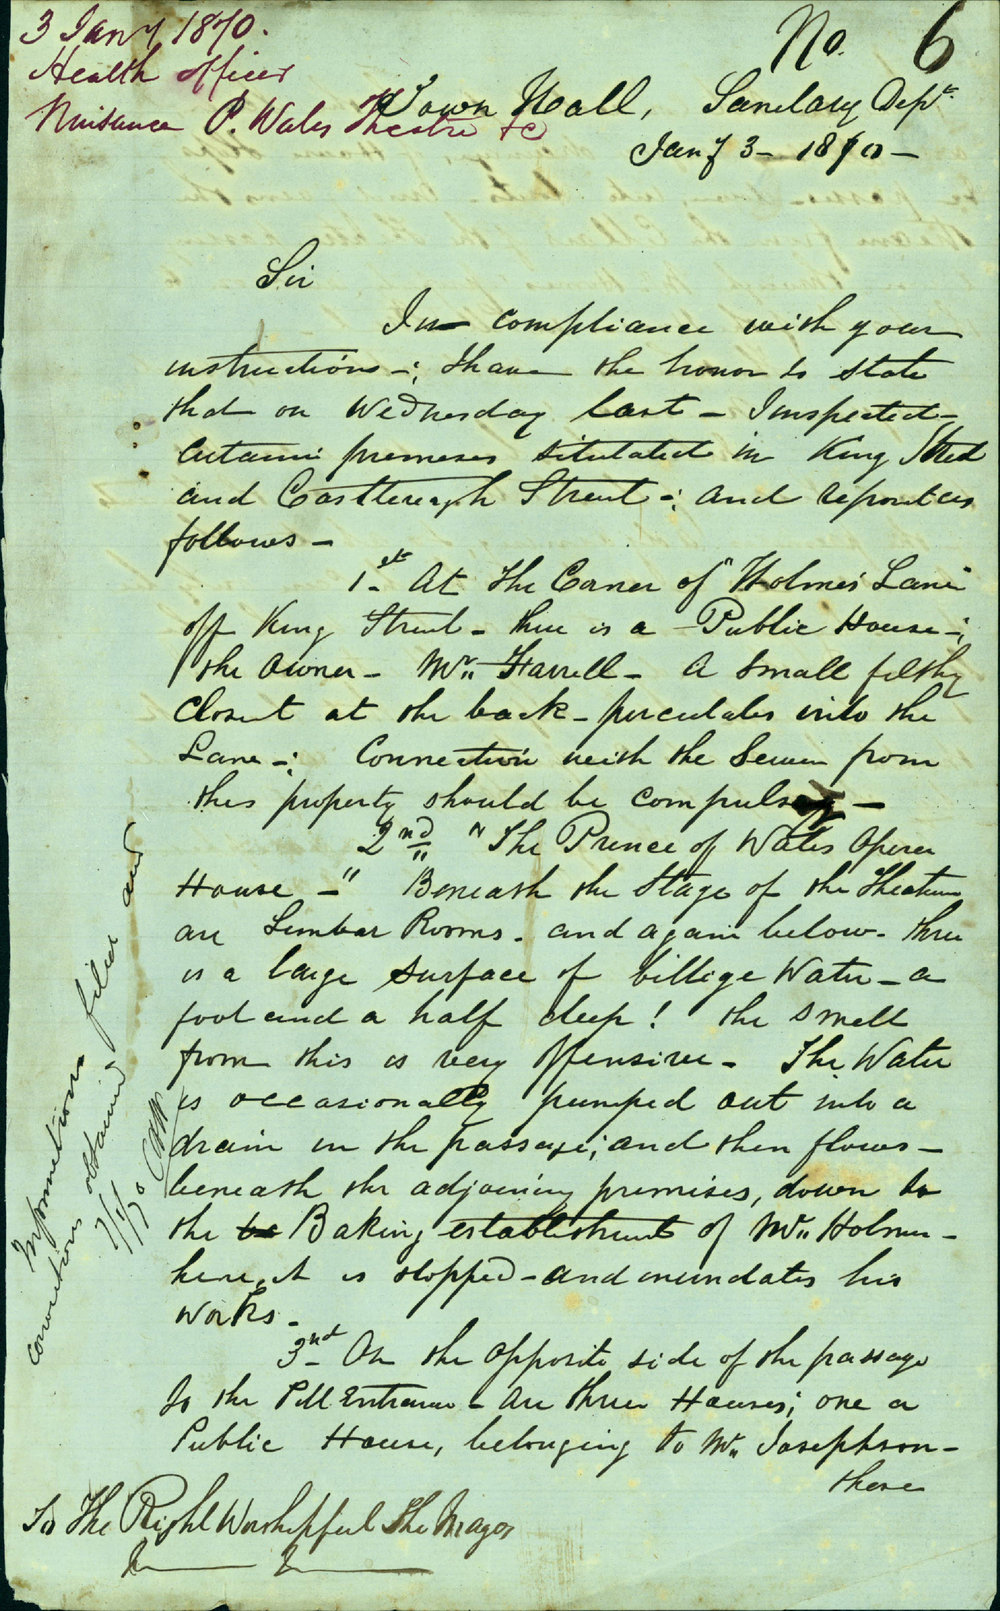 3 Jany 1870.
Health officer
Nuisance P. Wales Theatre &c
No. 6
Town Hall, Sanitary Dept.
Jany 3 - 1870 -
Sir
In compliance with your
instructions -; I have the honor to state
that on Wednesday last - I inspected -
certain premises situtated in King Street
and Castlereagh Street -; and report as
follows -
1st - At the Corner of "Holmes Lane"
off King Street - there is a Public House -;
the owner - Mr. Farrell - A small filthy
Closet at the back - perculates into the
Lane -; Connection with the Sewer from
this property should be compulsory -
2nd "The Prince of Wales Opera
House -" Beneath the Stage of the Theatre
are Lumber Rooms - and again below - there
is a large surface of billige Water - a
foot and a half deep! the smell
from this is very offensive - The Water
is occasionally pumped out into a
drain in the passage; and then flows -
beneath the adjoining premises, down to
the Baking establishment of Mr. Holmes -
here it is stopped - and inundates his
works -
3nd - On the opposite side of the passage
to the Pit Entrance - are three Houses; one a
Public House, belonging to Mr. Josephson -
these
To The Right Worshipful The Mayor
Informations filed and
convictions obtained
7/1/70